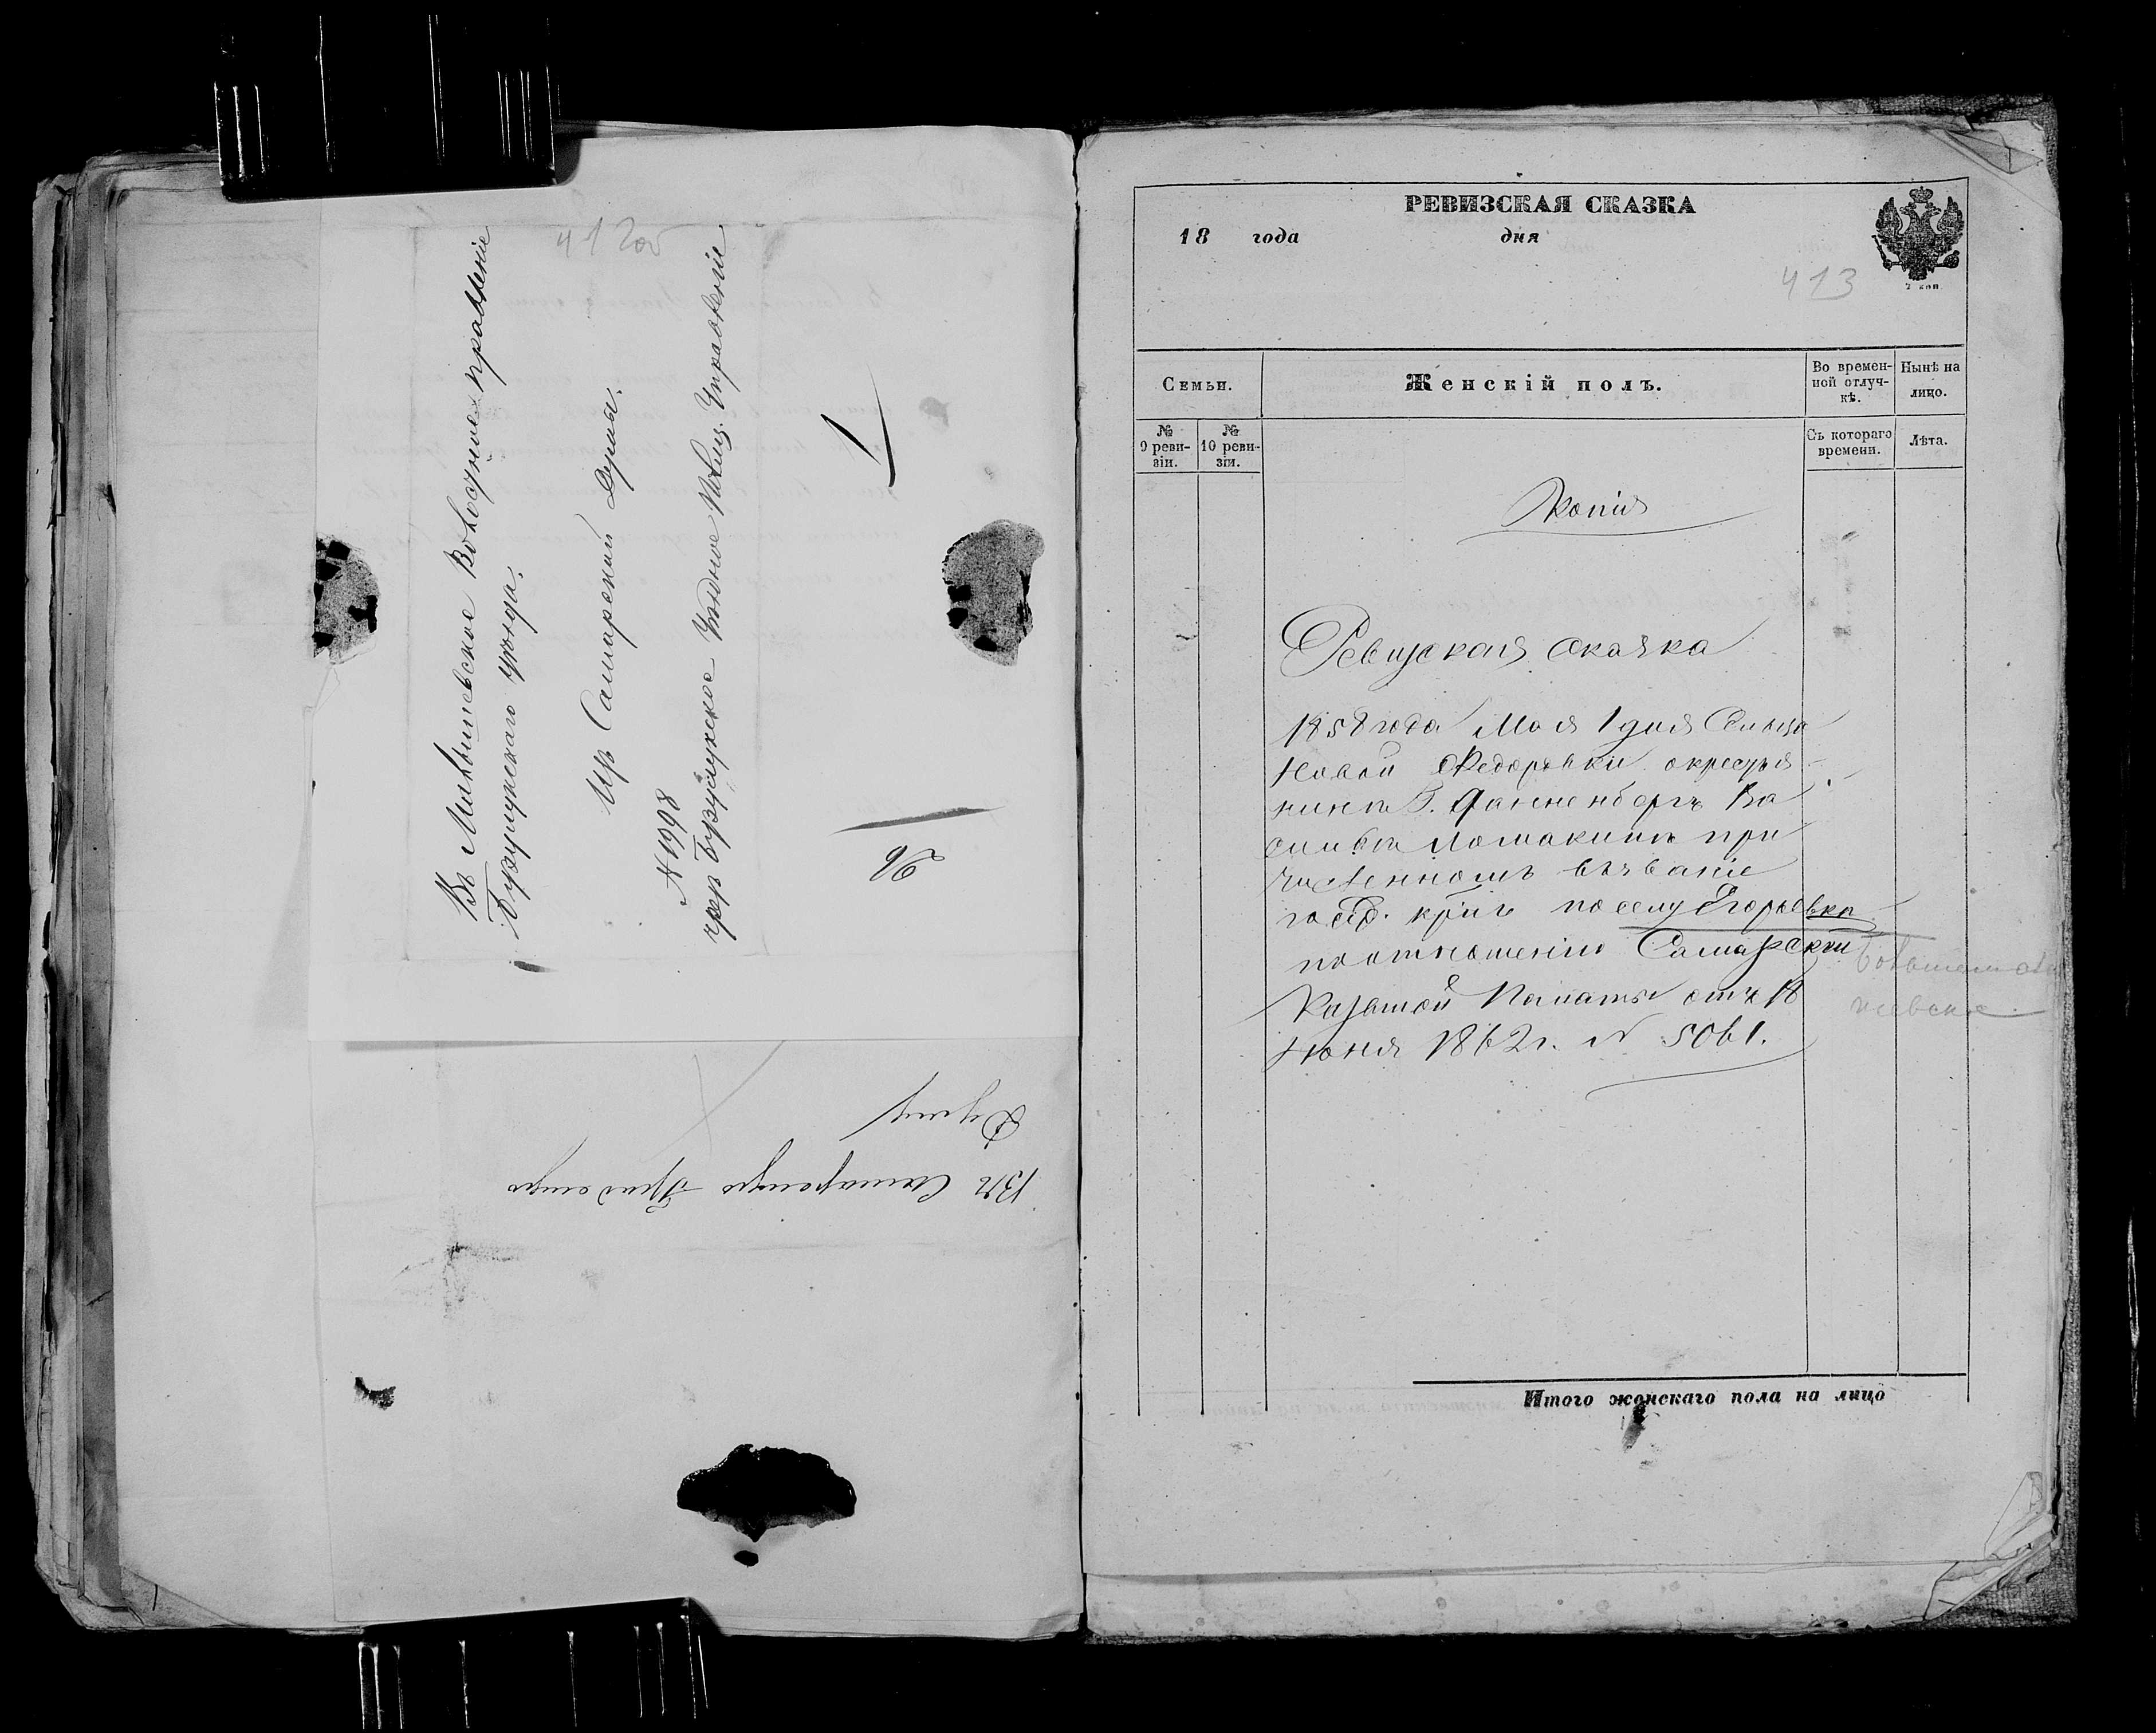 412 об
Въ Миловшевское Волостное правленіе
Бузулукскаго уѣзда.
Изъ Самарской Думы.
№ 1998
чрез Бузулукское Уѣздное Полиц. Управленіе
Въ Самарскую Градскую
Думу
РЕВИЗСКАЯ СКАЗКА
18 года дня
413
2 коп.
Семьи.
Женскій полъ.
Во времен-
ной отлуч-
кѣ.
Нынѣ на
лицо.
№
9 реви-
зіи.
№
10 реви-
зіи.
Съ котораго
времени.
Лѣта.
Копия
Ревизская сказка
1858 года Мая 1 дня Сельца
Новой Федоровки о крестья
нина Г. Данненбергъ Ва
силья Ломакина при
численномъ въ званіе
госуд. крѣ по селу Егорьевкѣ
по отношенію Самарской
Казенной Палаты отъ 18
Июня 1862 г. № 5061.
Итого женскаго пола на лицо